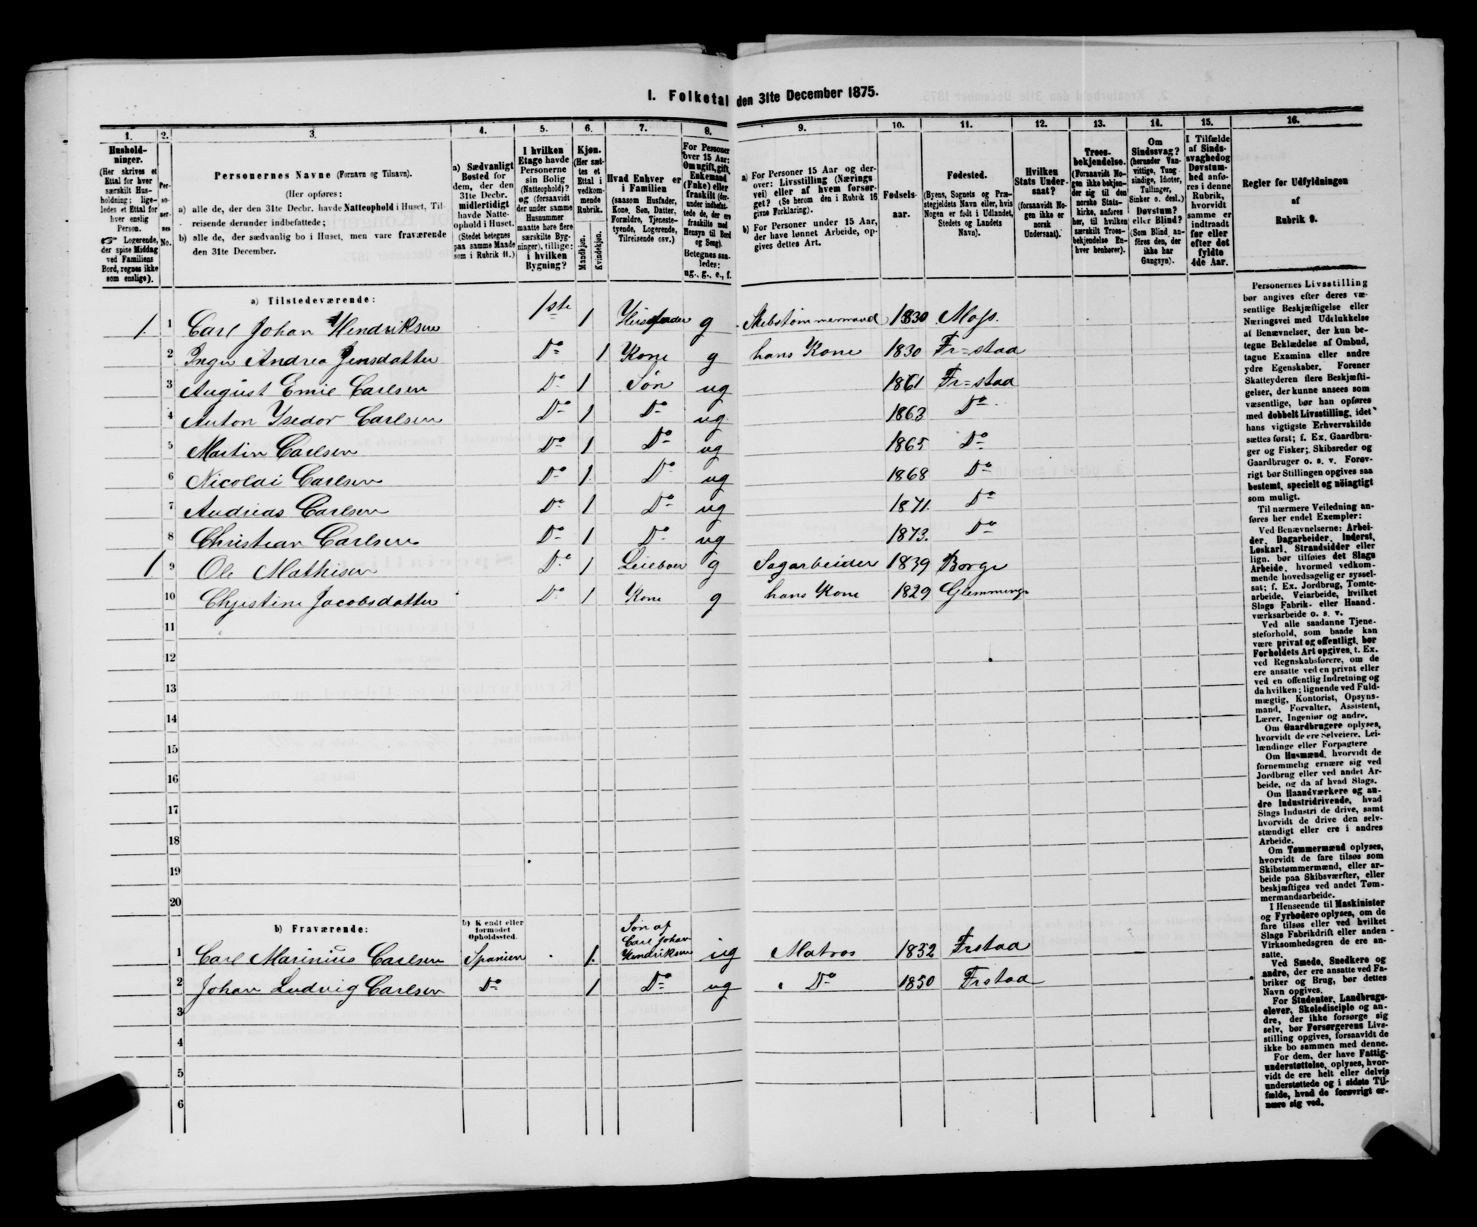 I. Folketal den 31te December 1875.
1. 2. 3. 4. 5. 6. 7. 8. 9. 10. 11. 12. 13. 14. 15. 16.
Hushold-
ninger.
(Her skrives et
Ettal for hver
særskilt Hus-
holdning; lige-
ledes et Ettal for
hver enslig
Person.
Logerende,
der spise Middag
ved Familiens
Bord, regnes ikke
som enslige).
Personernes Navne (Fornavn og Tilnavn).
(Her opføres:
a) alle de, der den 31te Decbr. havde Natteophold i Huset, Til-
reisende derunder indbefattede;
b) alle de, der sædvanlig bo i Huset, men vare fraværende
den 31te December.
a) Sædvanligt
Bosted for
dem, der den
31te Decbr.
midlertidigt
havde Natte-
ophold i Huset.
(Stedet betegnes
paa samme Maade
som i Rubrik 11.)
I hvilken
Etage havde
Personerne
sin Bolig
(Natteophold)?
og (forsaavidt
der under samme
Husnummer
maatte høre flere
særskilte Byg-
ninger), tillige:
i hvilken
Bygning?
Kjøn.
(Her sæt-
tes et
Ettal i
vedkom-
mende
Rubrik.
Mandkjøn.
Kvindekjøn.
Hvad Enhver er
i Familien
(saasom Husfader,
Kone, Søn, Datter,
Forældre, Tjeneste-
tyende, Logerende,
Tilreisende osv.)
For Personer
over 15 Aar:
Om ugift, gift,
Enkemand
(Enke) eller
fraskilt (der-
under indbefat-
tede de, der ere
fraskilte med
Hensyn til Bord
og Seng).
Betegnes saa-
ledes:
ug., g., e., f.
a) For Personer 15 Aar og der-
over: Livsstilling (Nærings
vei) eller af hvem forsør-
get? (Se herom den i Rubrik 16
givne Forklaring).
b) For Personer under 15 Aar,
der have lønnet Arbeide, op-
gives dettes Art.
Fødsels-
aar.
Fødested.
(Byens, Sognets og Præ-
stegjeldets Navn eller, hvis
Nogen er født i Udlandet,
Stedets og Landets
Navn).
Hvilken
Stats Under-
saat?
(forsaavidt No-
gen ikke er
norsk
Undersaat).
Troes-
bekjendelse.
(Forsaavidt No-
gen ikke bekjen-
der sig til den
norske Stats-
kirke, anføres
her, til hvilken
særskilt Troes-
bekjendelse En-
hver henhører).
Om
Sindssvag?
(herunder Van-
vittige, Tung-
sindige, Idioter,
Tullinger,
Sinker o. desl.)
Døvstum?
eller Blind?
(Som Blind an-
føres den, der
ikke har
Gangsyn).
I Tilfælde
af Sinds-
svaghed og
Døvstum-
hed anfø-
res i denne
Rubrik,
hvorvidt
samme er
indtraadt
før eller
efter det
fyldte
4de Aar.
Regler for Udfyldningen
af
Rubrik 9.
a) Tilstedeværende:
1 1 Carl Johan Hendriksen 1ste 1 Husfader g Skibstømmermand 1830 Moss.
2 Inger Andrea Jensdatter Do 1 Kone g hans Kone 1830 Fr=stad
3 August Emil Carlsen Do 1 Søn ug 1861 Fr=stad
4 Anton Isedor Carlsen Do 1 Do ug 1863 Do
5 Martin Carlsen Do 1 Do ug 1865 Do
6 Nicolai Carlsen Do 1 Do ug 1868 Do
7 Andreas Carlsen Do 1 Do ug 1871. Do
8 Christian Carlsen Do 1 Do ug 1873. Do
1 9 Ole Mathisen Do 1 Leieboer g Sagarbeider 1839 Borge
10 Christine Jacobsdatter Do 1 Kone g hans Kone 1829 Glemminge
11
12
13
14
15
16
17
18
19
20
b) Fraværende:
b) Kendt eller
formodet
Opholdssted.
1 Carl Marinius Carlsen Spanien 1. Søn af Carl Johan Hendriksen ug Matros 1852 Frstad
2 Johan Ludvig Carlsen Do 1 Do ug Do 1850 Frstad
3
4
5
6
Personernes Livsstilling
bør angives efter deres væ-
sentlige Beskjæftigelse eller
Næringsvei med Udelukkelse
af Benævnelser, der kun be-
tegne Beklædelse af Ombud,
tagne Examina eller andre
ydre Egenskaber. Forener
Skatteyderen flere Beskjæfti-
gelser, der kunne ansees som
væsentlige, bør han opføres
med dobbelt Livsstilling, idet
hans vigtigste Erhvervskilde
sættes først; f. Ex. Gaardbru-
ger og Fisker; Skibsreder og
Gaardbruger o. s. v. Forøv-
rigt bør Stillingen opgives saa
bestemt, specielt og nøiagtigt
som muligt.
Til nærmere Veiledning an-
føres her endel Exempler:
Ved Benævnelserne: Arbei-
der, Dagarbeider, Inderst,
Løskarl, Strandsidder eller
lign. bør tilføies det Slags
Arbeide, hvormed vedkom-
mende hovedsagelig er syssel-
sat; f. Ex. Jordbrug, Tomte-
arbeide, Veiarbeide, hvilket
Slags Fabrik- eller Haand-
værksarbeide o. s. v.
Ved alle saadanne Tjene-
steforhold, som baade kan
være privat og offentligt, bør
Forholdets Art opgives, t. Ex.
ved Regnskabsførere, om de
ere ansatte ved en privat eller
ved en offentlig Indretning og
da hvilken; lignende ved Fuld-
mægtig, Kontorist, Opsyns-
mand, Forvalter, Assistent,
Lærer, Ingeniør og andre.
Om Gaardbrugere oplyses,
hvorvidt de ere Selveiere, Lei-
lændinge eller Forpagtere
Om Husmænd, hvorvidt de
fornemmelig ernære sig ved
Jordbrug eller ved andet Ar-
beide, og da af hvad Slags.
Om Haandværkere og an-
dre Industridrivende, hvad
Slags Industri de drive, samt
hvorvidt de drive den selv-
stændigt eller ere i andres
Arbeide.
Om Tømmermænd oplyses,
hvorvidt de fare tilsøs som
Skibstømmermænd, eller ar-
beide paa Skibsværfter, eller
beskjæftiges ved andet Tøm-
mermandsarbeide.
I Henseende til Maskinister
og Fyrbødere oplyses, om de
fare tilsøs eller ved hvilket
Slags Fabrikdrift eller anden
Virksomhedsgren de ere an-
satte.
Ved Smede, Snedkere og
andre, der ere ansatte ved Fa-
briker og Brug, bør dettes
Navn opgives.
For Studenter, Landbrugs-
elever, Skoledisciple og an-
dre, der ikke forsørge sig
selv, bør Forsørgerens Livs-
stilling opgives, forsaavidt de
ikke bo sammen med denne.
For dem, der have Fattig-
understøttelse, oplyses, hvor-
vidt de ere helt eller delvis
understøttede og i sidste Til-
fælde, hvad de forøvrigt er-
nære sig ved.